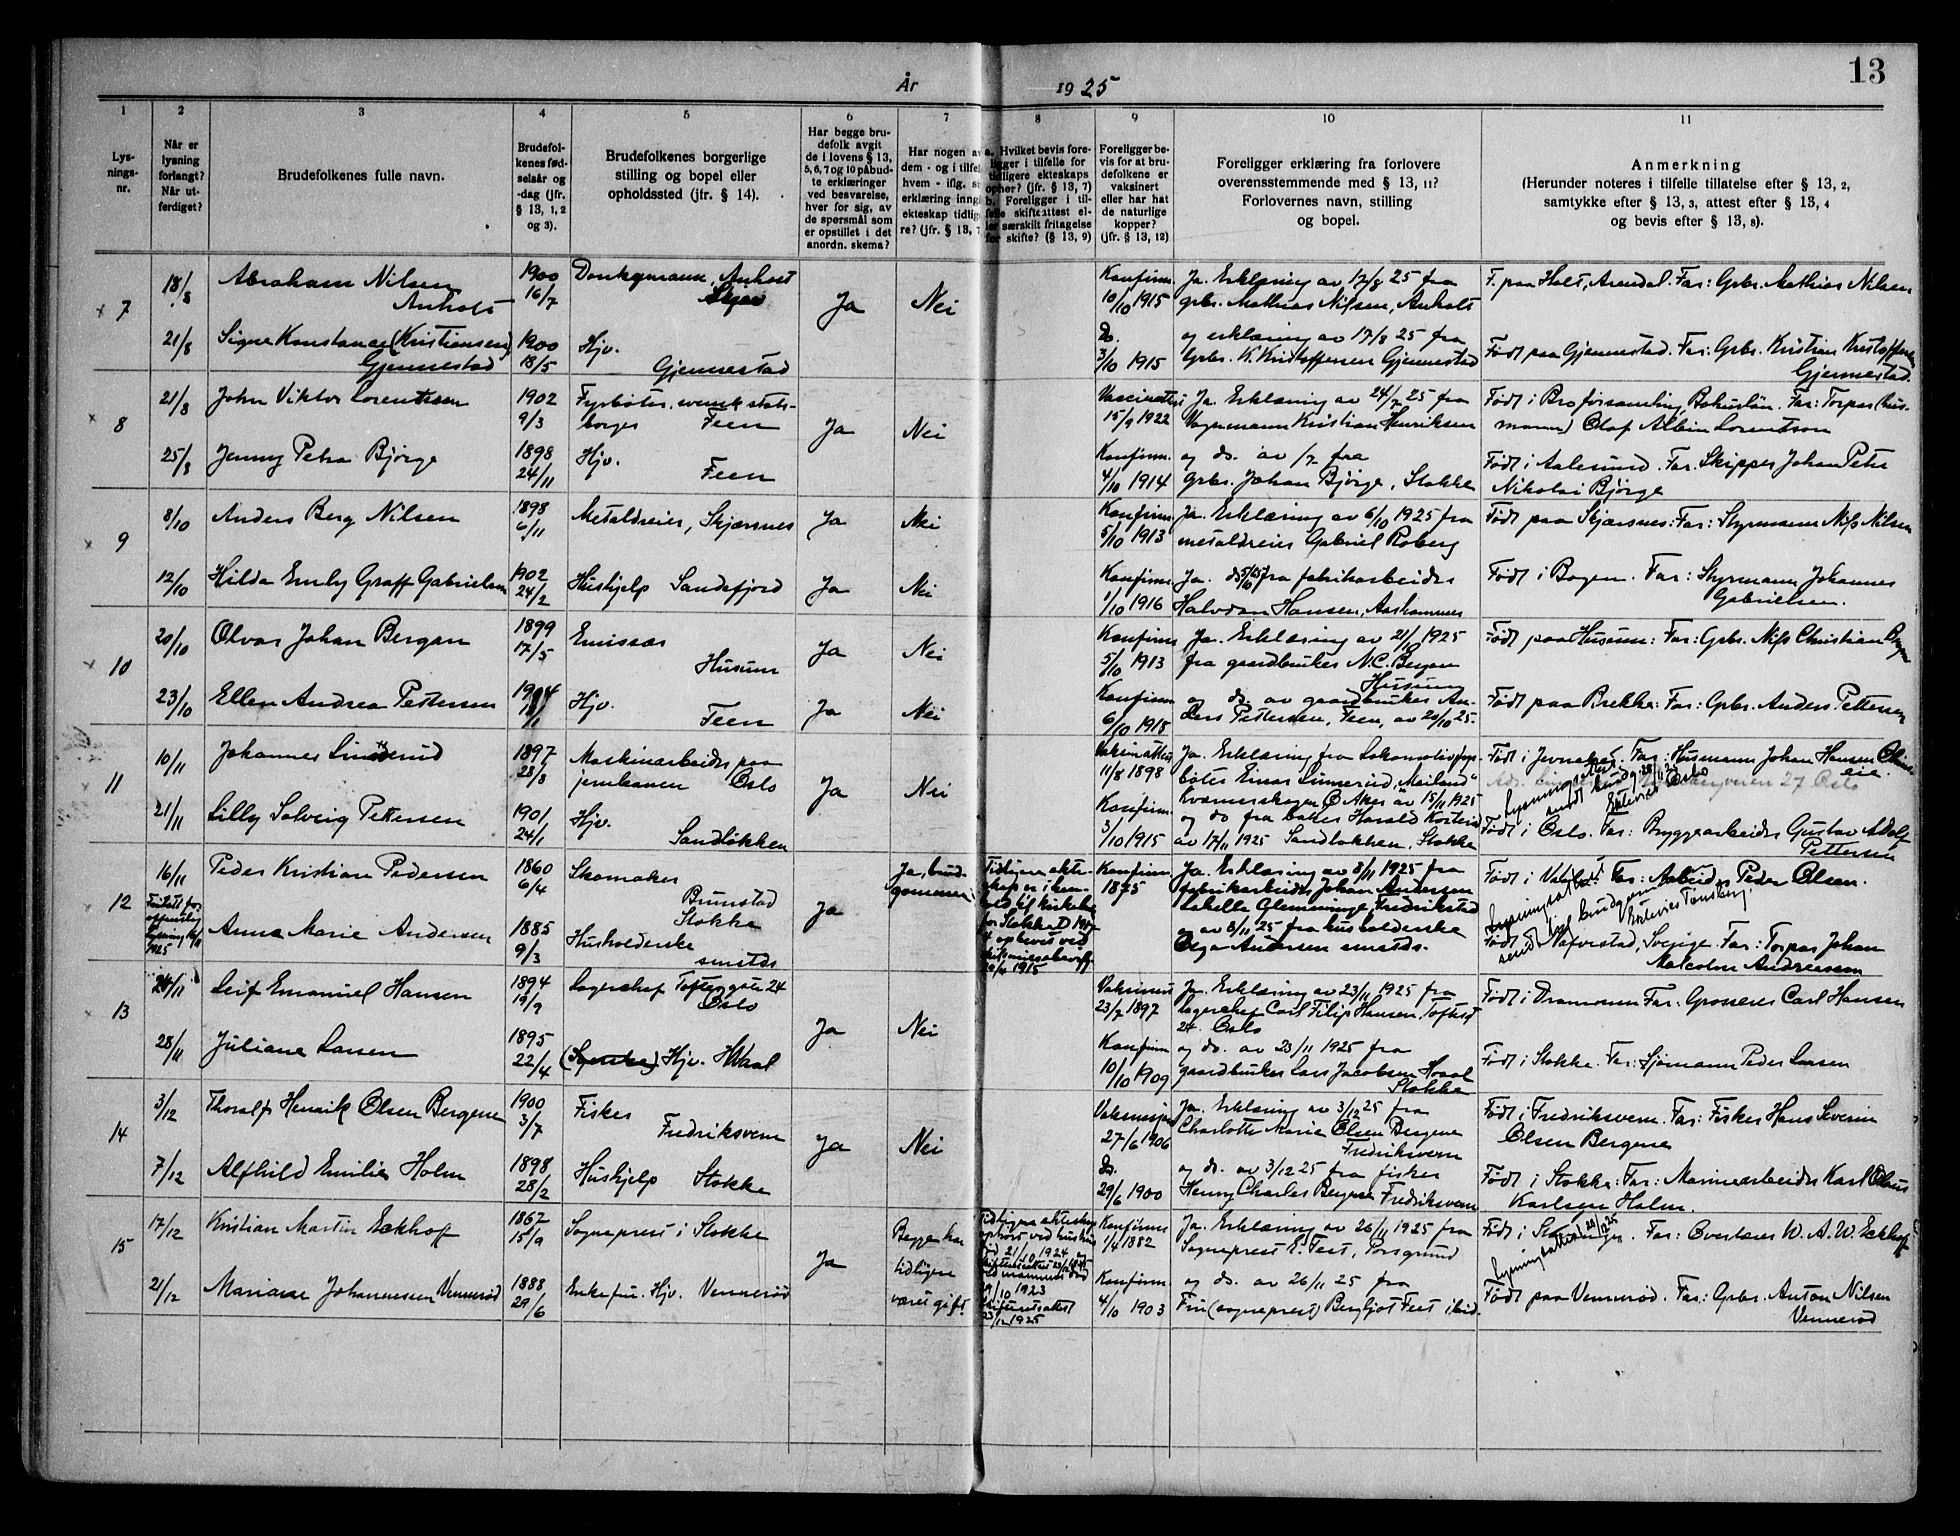 13
År 1925
1 2 3 4 5 6 7 8 9 10 11
Lysningsnr.
Når er lysning forlangt? Når utferdiget?
Brudefolkenes fulle navn.
Brudefolkenes fødselsår og -dag (jfr. § 13, 1, 2 og 3).
Brudefolkenes borgerlige stilling og bopel eller opholdssted (jfr. § 14).
Har begge brudefolk avgit de i lovens § 13, 5, 6, 7 og 10 påbudte erklæringer ved besvarelse, hver for sig, av de spørsmål som er opstillet i det anordn. skema?
Har nogen av dem - og i tilfelle hvem - iflg.
erklæring inng
ekteskap tidlig
re? (jfr. § 13, 7
Hvilket bevis foreligger i tilfelle for tidligere ekteskaps opher? (jfr. § 13, 7)
b. Foreligger i tilfelle skifteattest eller særskilt fritagelse for skifte? (§ 13, 9)
Foreligger bevis for at brudefolkene er vaksinert eller har hat de naturlige kopper? (jfr. § 13, 12)
Foreligger erklæring fra forlovere overensstemmende med § 13, 11? Forlovernes navn, stilling og bopel.
Anmerkning
(Herunder noteres i tilfelle tillatelse efter § 13, 2, samtykke efter § 13, 3, attest efter § 13, 4 og bevis efter § 13, 8).
7 18/8 Abraham Nilsen Anholt 1900 16/7 Donkeymann, Anholt Ja Nei Konfirm. 10/10 1915 Ja. Erklæring av 17/8 25 fra grbr. Mathias Nilsen, Anholt F. paa Holt, Arendal. Far: Grbr. Mathias Nilsen
21/8 Signe Konstance (Kristiansen) Gjennestad 1900 18/5 Hjv. Gjennestad Do. 3/10 1915 og erklæring av 17/8 25 fra Grbr. K. Kristoffersen Gjennestad Født paa Gjennestad. Far: Grbr. Kristian Kristoffersen Gjennestad.
8 21/8 John Viktor Lorentsson 1902 9/3 Fyrbøter, svensk statsborger Feen Ja Nei Vaccinattest 15/9 1922 Ja. Erklæring av 24/7 25 fra Vognmann Kristian Henriksen Født i Broforsamling, Bohuslän. Far: Torpar (husmann) Olof Albin Lorentsson
25/8 Jenny Petra Bjørge 1898 24/11 Hjv. Feen Konfirm. 4/10 1914 og do. av /7 fra grbr. Johan Bjørge, Stokke Født i Aalesund. Far. Skipper Johan Peter Nikolai Bjørge
9 8/10 Anders Berg Nilsen 1898 6/11 Metaldreier, Skjærsnes Ja Nei Konfirm. 5/10 1913 Ja. Erklæring av 6/10 1925 fra metaldreier Gabriel Roberg Født paa Skjærsnes: Far: Styrmann Nils Nilsen
12/10 Hilda Emly Graff Gabrielsen 1902 24/2 Hushjelp Sandefjord Ja Nei Konfirm. 1/10 1916 Ja. do 5/10 25 fra fabrikarbeider Halvdan Hansen, Aashammer Født i Bogen. Far: Styrmann Johannes Gabrielsen.
10 20/10 Olvar Johan Bergan 1899 17/5 Emissær Husum Ja Nei Konfirm 5/10 1913 Ja. Erklæring av 21/10 1925 fra gaardbruker N.C. Bergan Husum Født paa Husum: Far: Grbr. Nils Christian Bergan
23/10 Ellen Andrea Pettersen 1904 /1 Hjv. Feen Ja Nei Konfirm. 6/10 1918 og do. av gaardbruker Anders Pettersen, Feen, av 20/10 25. Født paa Brekke: Far: Grbr. Anders Pettersen
11 10/11 Johannes Linnerud 1897 28/8 Maskinarbeider paa jernbanen Oslo Ja Nei Vaksinattest 11/8 1898 Ja. Erklæring fra Lokomotivfyrbøter Einar Linnerud, "Meiland" Kværnerskogen Ø Aker av 15/11 1925 Født i Jevnaker. Far: Husmann Johan Hansen
21/11 Lilly Solveig Pettersen 1901 24/1 Hjv. Sandløkken Konfirm. 3/10 1915 og do fra baker Harald av 17/11 1925 Sandløkken, Stokke Født i Oslo. Far: Bryggearbeider Gustav Adolf Pettersen
12 16/11 Peder Kristian Pedersen 1860 6/4 Skomaker Brunstad Stokke Ja Ja, brudgommen Konfirm. 1875 Ja. Erklæring av 8/11 1925 fra fabrikarbeider Johan Andersen Labella Glemminge Fredrikstad Far: Arbeider Peder Olsen.
1925 Anna Marie Andersen 1885 9/3 Husholderske smstds og av 8/11 25 fra husholderske Olga Andersen smstds. Født i Nafverstad, Sverige. Far: Torpar Johan Malcolm Andreassen
Tidligere ekteskap er i henhold til kirkebok for Stokke 1915
13 24/11 Leif Emanuel Hansen 1894 19/9 Lagerchef Toftesgate 24 Oslo Ja Nei Vaksinert 23/7 1897 Ja. Erklæring av 23/11 1925 fra Lagerchef Carl Filip Hansen, Toftesgt 24. Oslo Født i Drammen Far: Grosserer Carl Hansen
28/11 Juliane Larsen 1895 22/4 Hjv. Konfirm 10/10 1909 og do. av 23/11 1925 fra gaardbruker Lars Jacobsen Stokke Født i Stokke. Far: Sjømann Peder Larsen
14 3/12 Thoralf Henrik Olsen Bergene 1900 3/7 Fisker Fredriksvern Ja Nei 27/6 1906 Ja. Erklæring av 3/12 25 fra Charlotte Marie Olsen Bergene Fredriksvern Født i Fredriksvern. Far: Fisker Hans Severin Olsen Bergene
7/12 Alfhild Emilie Holm 1898 28/2 Hushjelp Stokke Do. 29/6 1900 og do. av 3/12 25 fra fisker Henry Charles Bergene Fredriksvern Født i Stokke: Far: Marinearbeider Karl Olaus Karlsen Holm.
15 17/12 Kristian Martin Eckhoff 1867 15/9 Sogneprest i Stokke Ja Begge har tidligere været gift. Konfirm 1/4 1882 Ja. Erklæring av 26/11 1925 fra Sogneprest E. Feet, Porsgrund Født i Stavanger. Far: Overlærer W. A. W. Eckhoff
21/12 Mariane Johannessen Vennerød 1888 29/6 Enkefru. Hjv. Vennerød Konfirm. 4/10 1903 og do. av 26/11 25 fra Fru (sogneprest) Bergljot Feet ibid. Født paa Vennerød. Far: Grbr. Anton Nilsen Vennerød